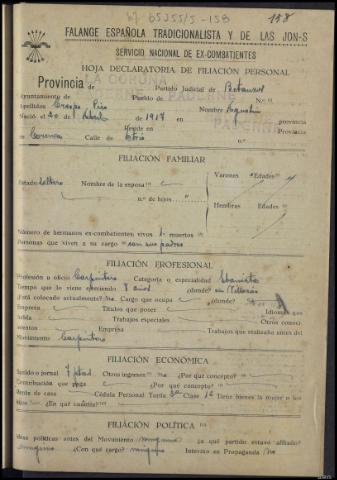 158
FALANGE ESPAÑOLA TRADICIONALISTA Y DE LAS JON-S
SERVICIO NACIONAL DE EX-COMBATIENTES
HOJA DECLARATORIA DE FILIACIÓN PERSONAL
Provincia de LA CORUÑA Partido Judicial de Betanzos
Ayuntamiento de PADERNE Pueblo de PADERNE N.º
Apellidos Crespo Nombre
Nació el 20 de de 1917 en provincia
Reside en Provincia
de Calle de
FILIACIÓN FAMILIAR
Estado soltero Nombre de la esposa Varones Edades
n.º de hijos
Hembras Edades
Número de hermanos ex-combatientes vivos muertos
Personas que viven a su cargo con sus padres
FILIACIÓN PROFESIONAL
Profesión u oficio Carpintero Categoría o especialidad Ebanista
Tiempo que lleva ejerciendo 8 años ¿dónde? en
¿Está colocado actualmente? no Cargo que ocupa ¿dónde?
Empresa Títulos que posee Idiomas que
habla Trabajos especiales Otros conoci-
mientos Empresa Trabajos que realizó antes del
Movimiento Carpintero
FILIACIÓN ECONÓMICA
Sueldo o jornal 7 ptas Otros ingresos no ¿Por qué concepto?
Contribución que paga ¿Por qué concepto?
Renta de casa Cédula Personal Tarifa 3ª Clase Tiene bienes la mujer o los
hijos ¿En qué cuantía?
FILIACIÓN POLÍTICA
Ideas políticas antes del Movimiento ninguna ¿a qué partido estuvo afiliado?
ninguno ¿Con qué cargo? ninguno Intervino en Propaganda no